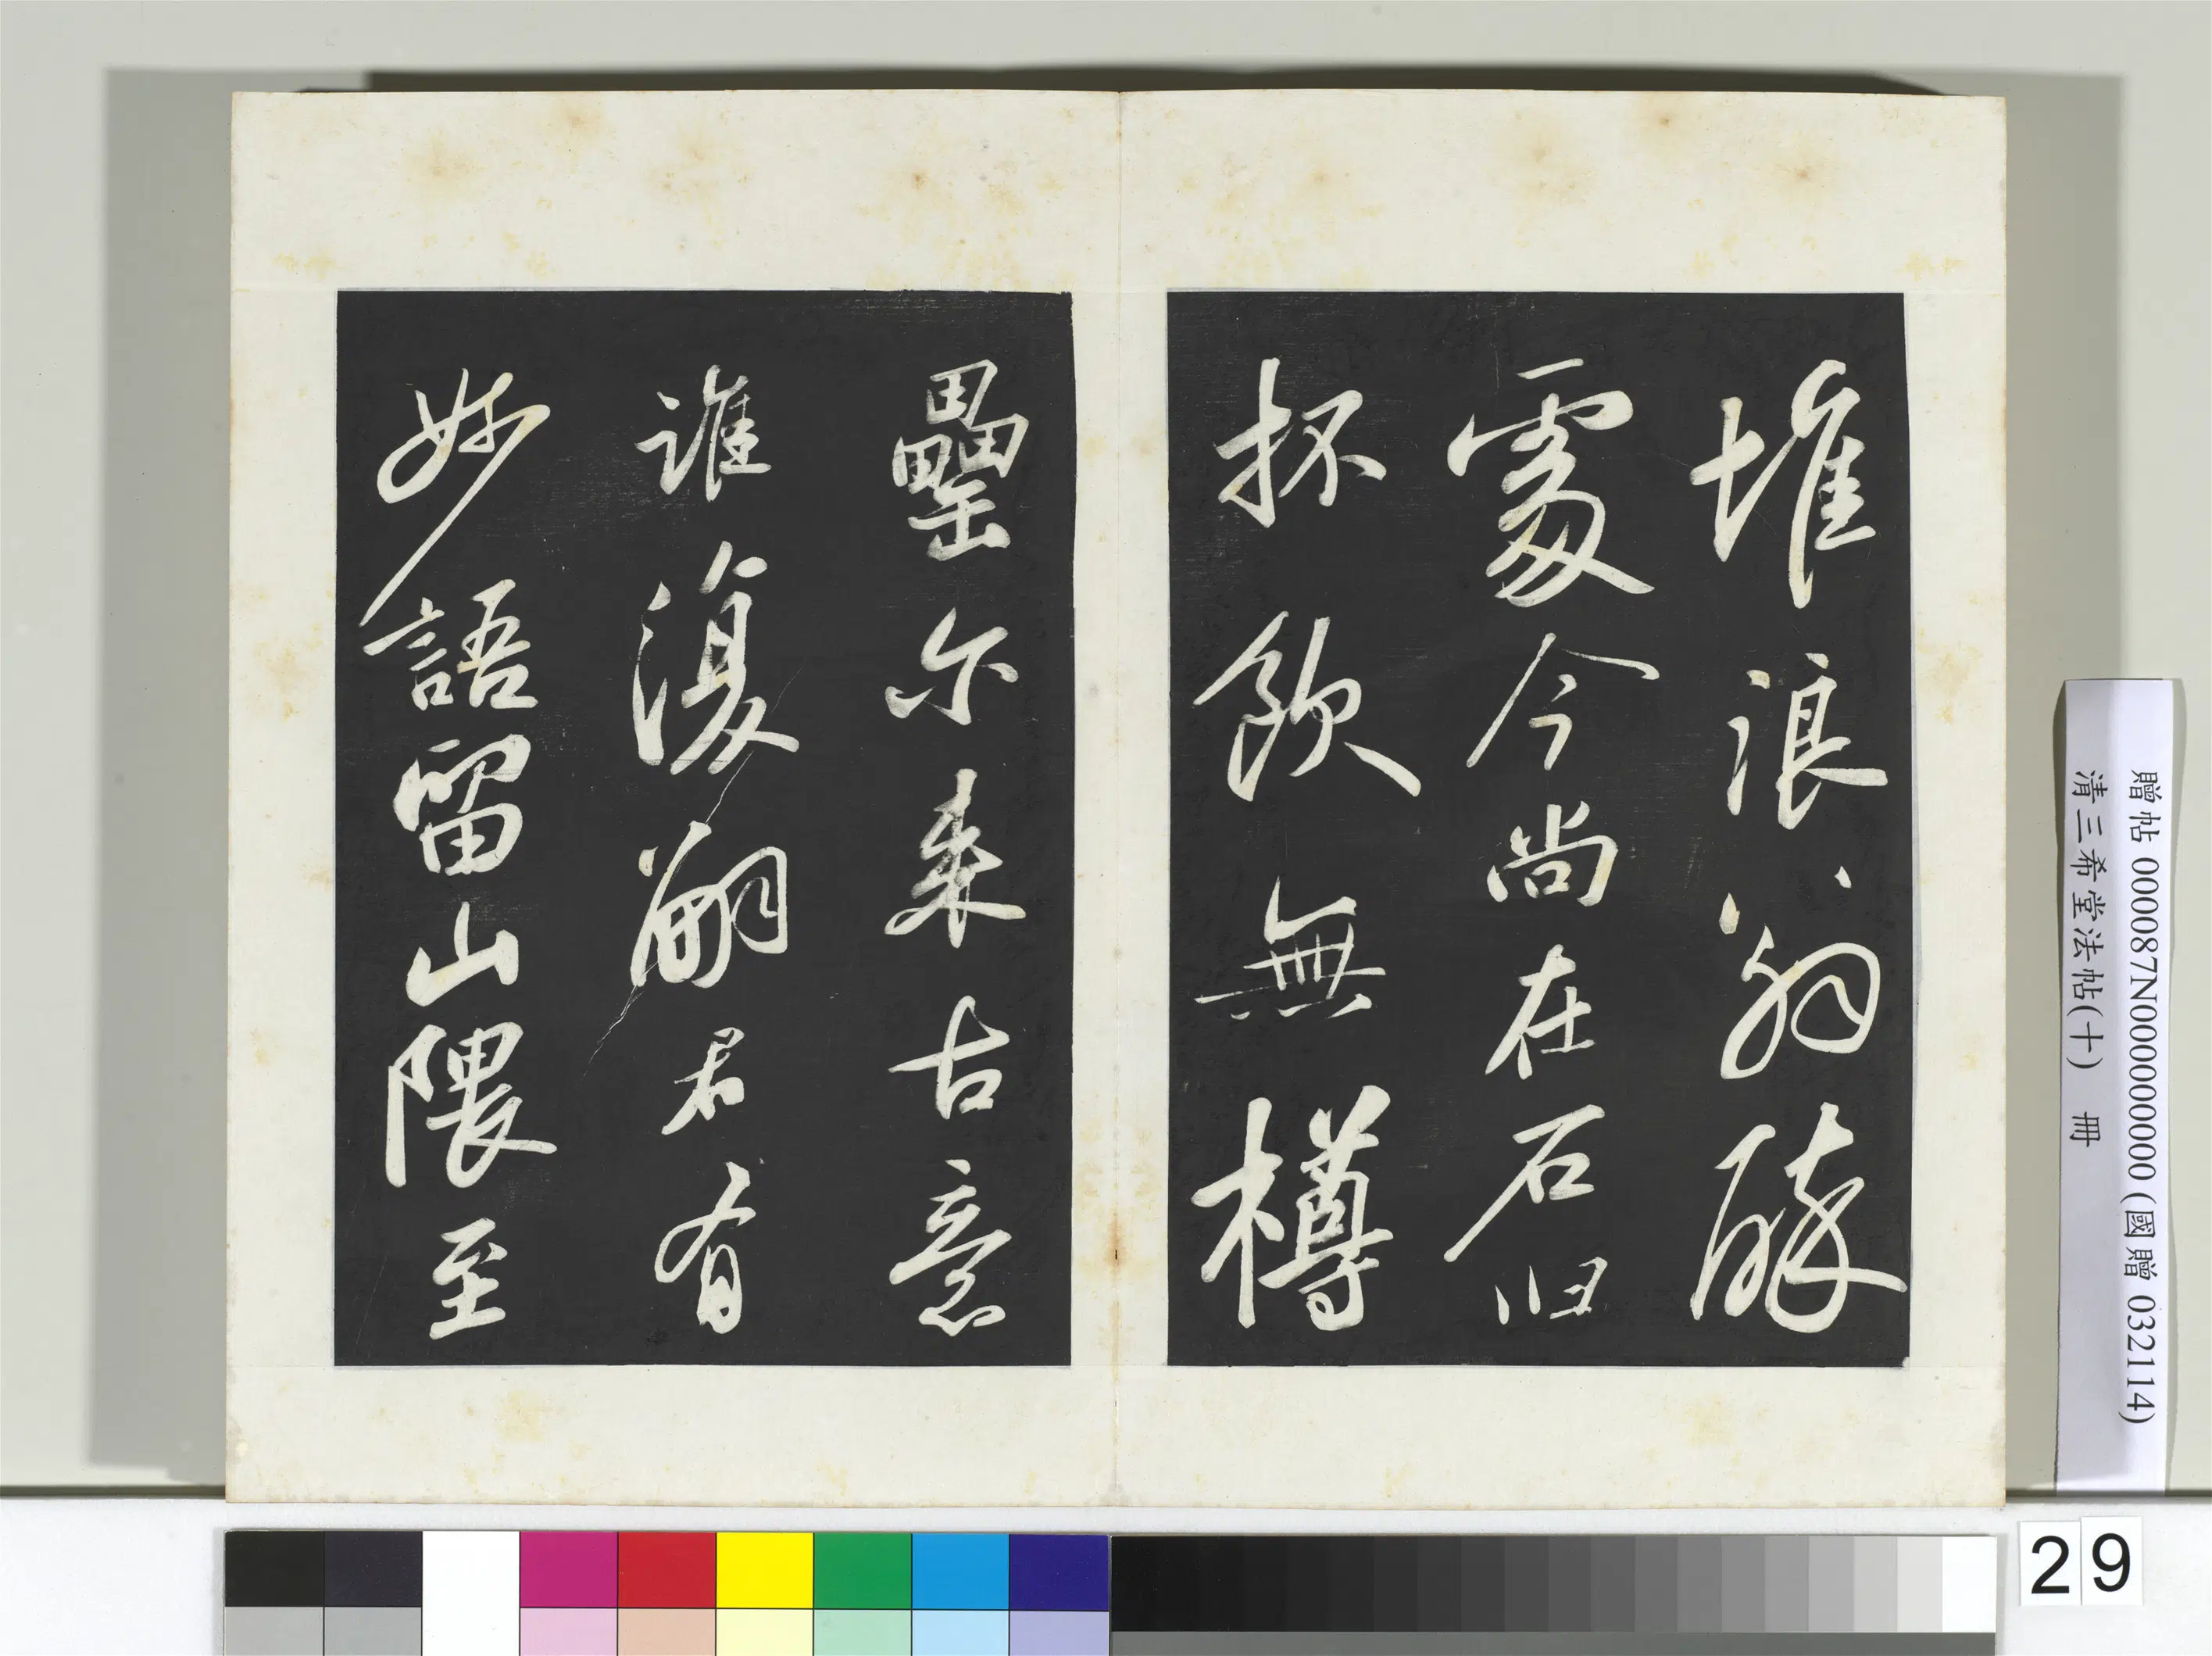 堆浪翁醉
處今尚在石归
抔飲無樽
罍尔来古意
誰復嗣君有
妙語留山隈至
贈帖 000087N000000000 (國贈 032114)
清三希堂法帖(十) 冊
29